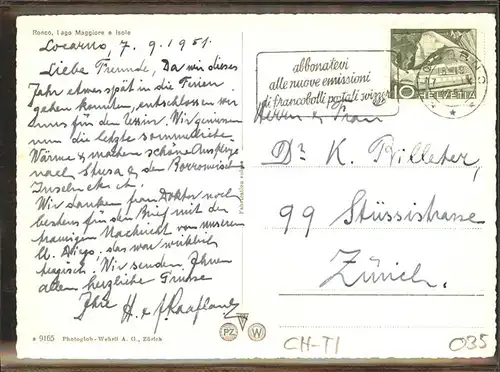 Ronco, Lago Maggiore e Isole
Locarno, 7. 9. 1951.
Liebe Freunde, Da wir dieses
Jahr etwas spät in die Ferien
gehen konnten, entschlossen wir
uns für den Tessin. Wir geniessen
nun die letzte sommerliche
Wärme & machen schöne Ausflüge
nach Stresa & den Borromeischen
Inseln etc.
Wir danken Frau Doktor noch
bestens für den Brief mit der
traurigen Nachricht von unserem
lb. das war wirklich
tragisch. Wir senden Ihnen
allen herzliche Grüsse
Ihre H. &
9165 Photoglob-Wehrli A. G., Zürich
abbonatevi
alle nuove emissioni
di francobolli postali svizzeri
LOCARNO
10
HELVETIA
Herrn & Frau
Dr. K. Billeter,
99 Stüssistrasse
Zürich.
PZ
W
CH-TI
035